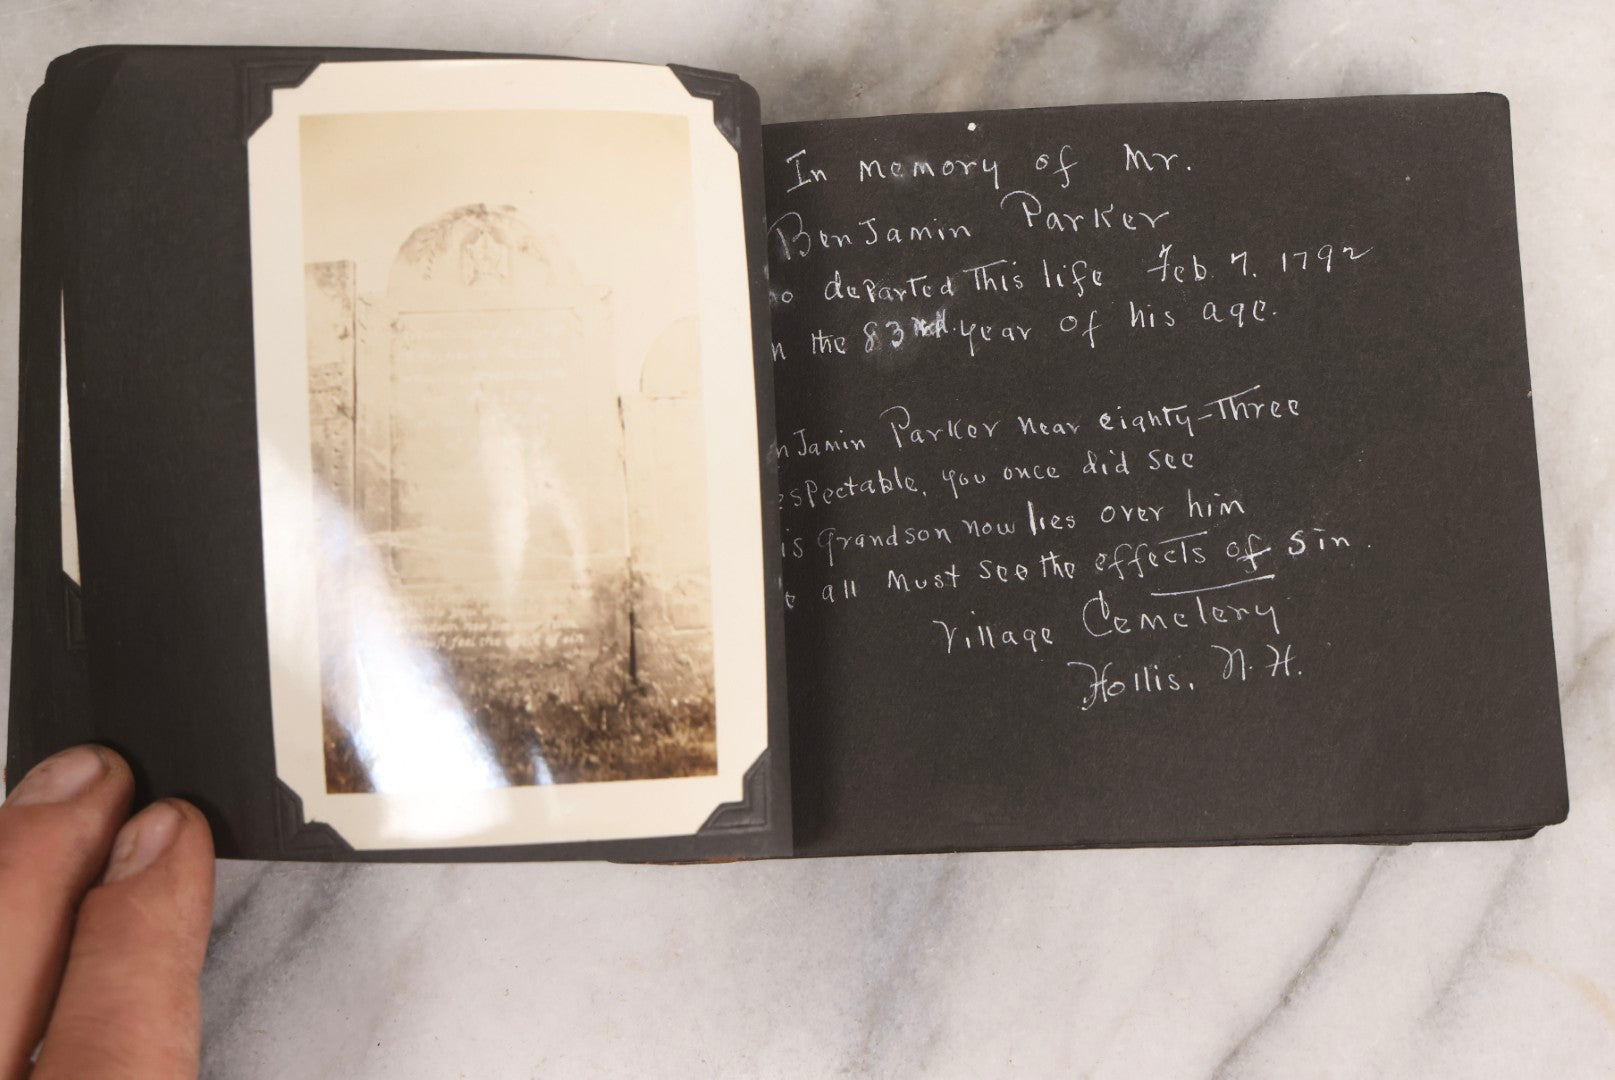 In memory of Mr.
BenJamin Parker
o departed This life Feb. 7. 1792
n the 83rd year of his age.
nJamin Parker near eighty-Three
espectable, you once did see
is grandson now lies over him
e all must see the effects of sin.
Village Cemetery
Hollis, N.H.
feel the effect of sin